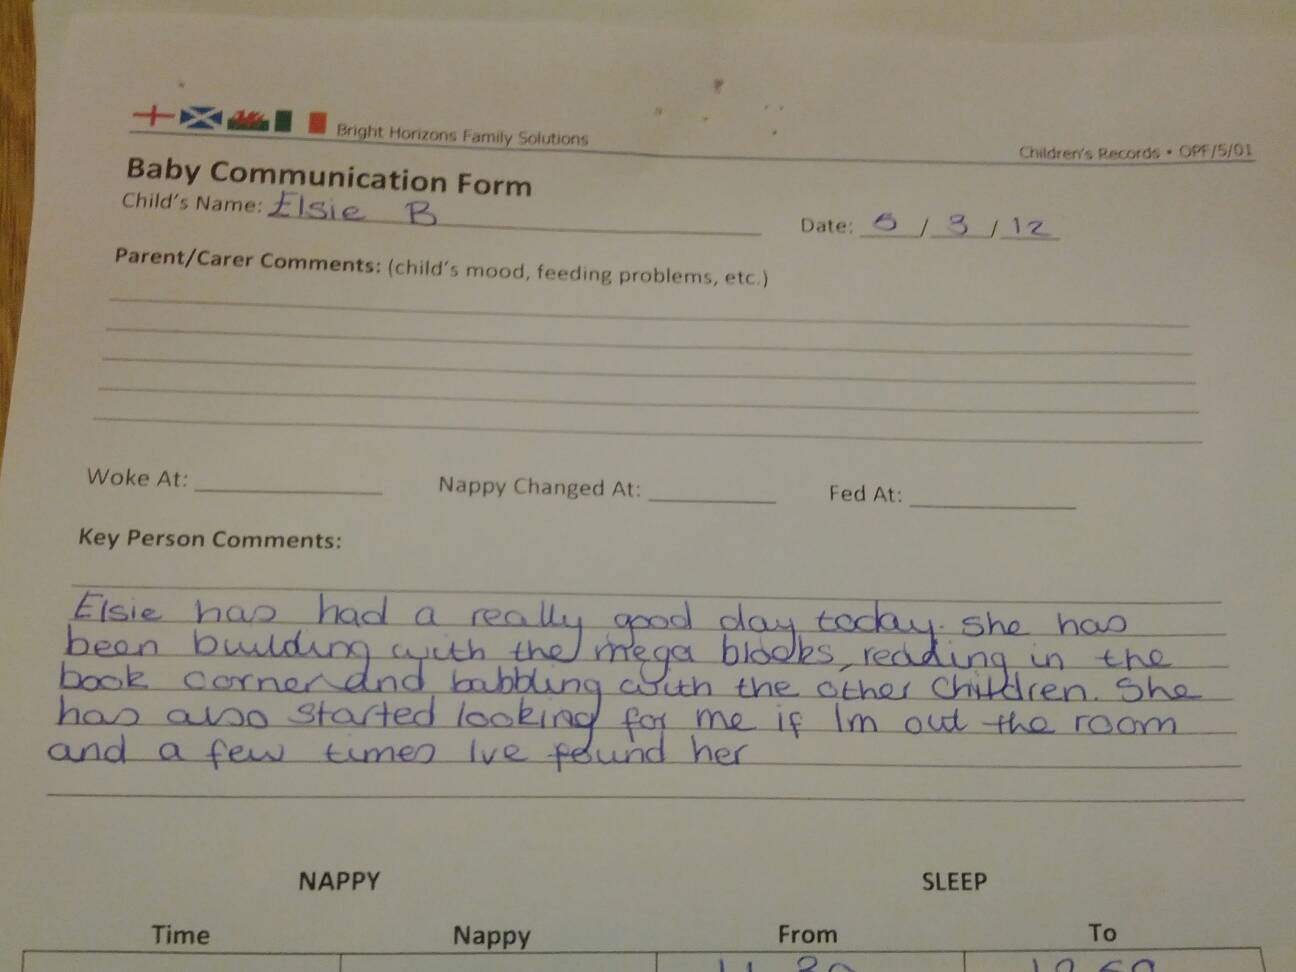 Bright Horizons Family Solutions
Children's Records • OPF/5/01
Baby Communication Form
Child's Name: Elsie B
Date: 5 / 3 / 12
Parent/Carer Comments: (child's mood, feeding problems, etc.)
Woke At:
Nappy Changed At:
Fed At:
Key Person Comments:
Elsie has had a really good day today. She has
been building with the mega blocks, reading in the
book corner and babbling with the other children. She
has also started looking for me if Im out the room
and a few times Ive found her
NAPPY
SLEEP
Time
Nappy
From
To